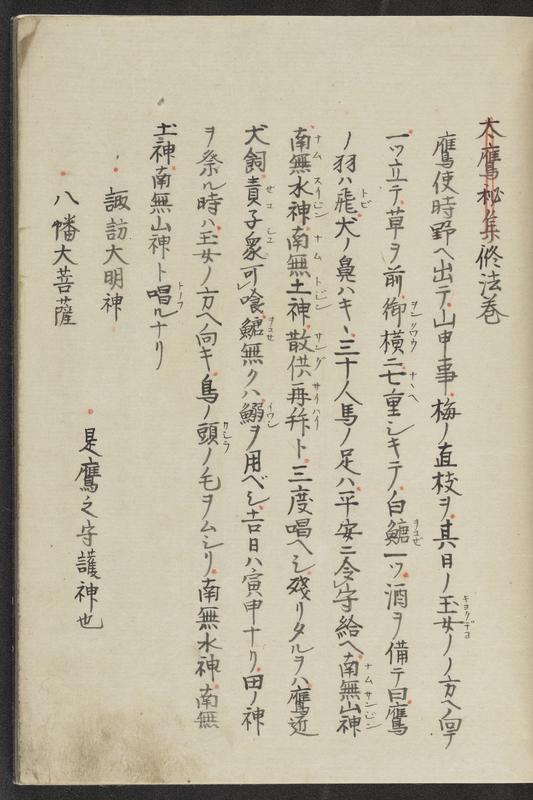 大鷹秘集修法巻
鷹使時野ヘ出テ山申事梅ノ直枝ヲ其日ノ玉女ノノ方ヘ向テ
一ツ立テ草ヲ前御横ニ七重シキテ白鱃一ツ酒ヲ備テ曰鷹
ノ羽ハ飛犬ノ鼻ハキヽ三十人馬ノ足ハ平安ニ令守給ヘ南無山神
南無水神南無土神散供再拜ト三度唱ヘシ残リタルヲハ鷹近
犬飼責子衆可喰鱃無クハ鰯ヲ用ベシ吉日ハ寅申ナリ田ノ神
ヲ祭ル時ハ玉女ノ方ヘ向キ鳥ノ頭ノ毛ヲムシリ南無水神南無
土神南無山神ト唱ルナリ
諏訪大明神
八幡大菩薩
是鷹之守護神也